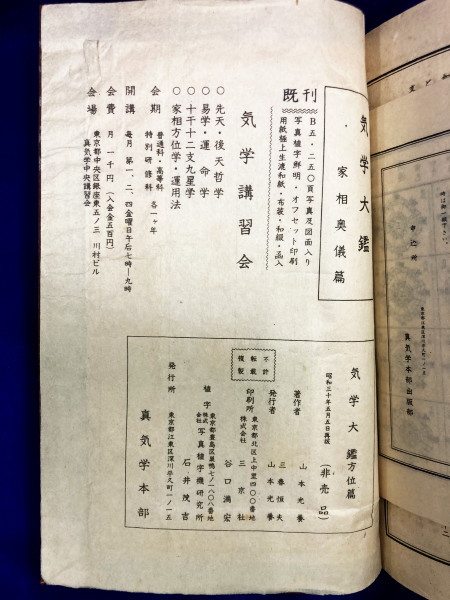 気学大鑑
・家相奥儀篇
既刊
B五・二五〇頁写真及図面入り
写真植字鮮明・オフセット印刷
用紙極上生漉和紙・布装・和綴・函入
気学講習会
○先天・後天哲学
○易学・運命学
○十干十二支九星学
○家相方位学・運用法
会期 普通科・高等科
特別研修科 各一ヶ年
開講 毎月第一、二、四金曜日午后七時―九時
会費 月一千円(入会金五百円)
会場 東京都中央区銀座東五ノ三 川村ビル
真気学中央講習会
気学大鑑方位篇
昭和三十年五月五日再版
(非売品)
著作者 山本光養
三春恒夫
発行者 山本光養
不許
転載
複製
東京都北区上中里四〇〇番地
印刷所 株式会社 三京社
谷口満宏
東京都豊島区巣鴨七ノ一八〇〇番地
植字 株式会社 写真植字機研究所
石井茂吉
東京都江東区深川平久町一ノ一五
発行所
真気学本部
時は御一報下さい。
申込所
東京都江東区深川平久町一ノ一五
真気学本部出版部